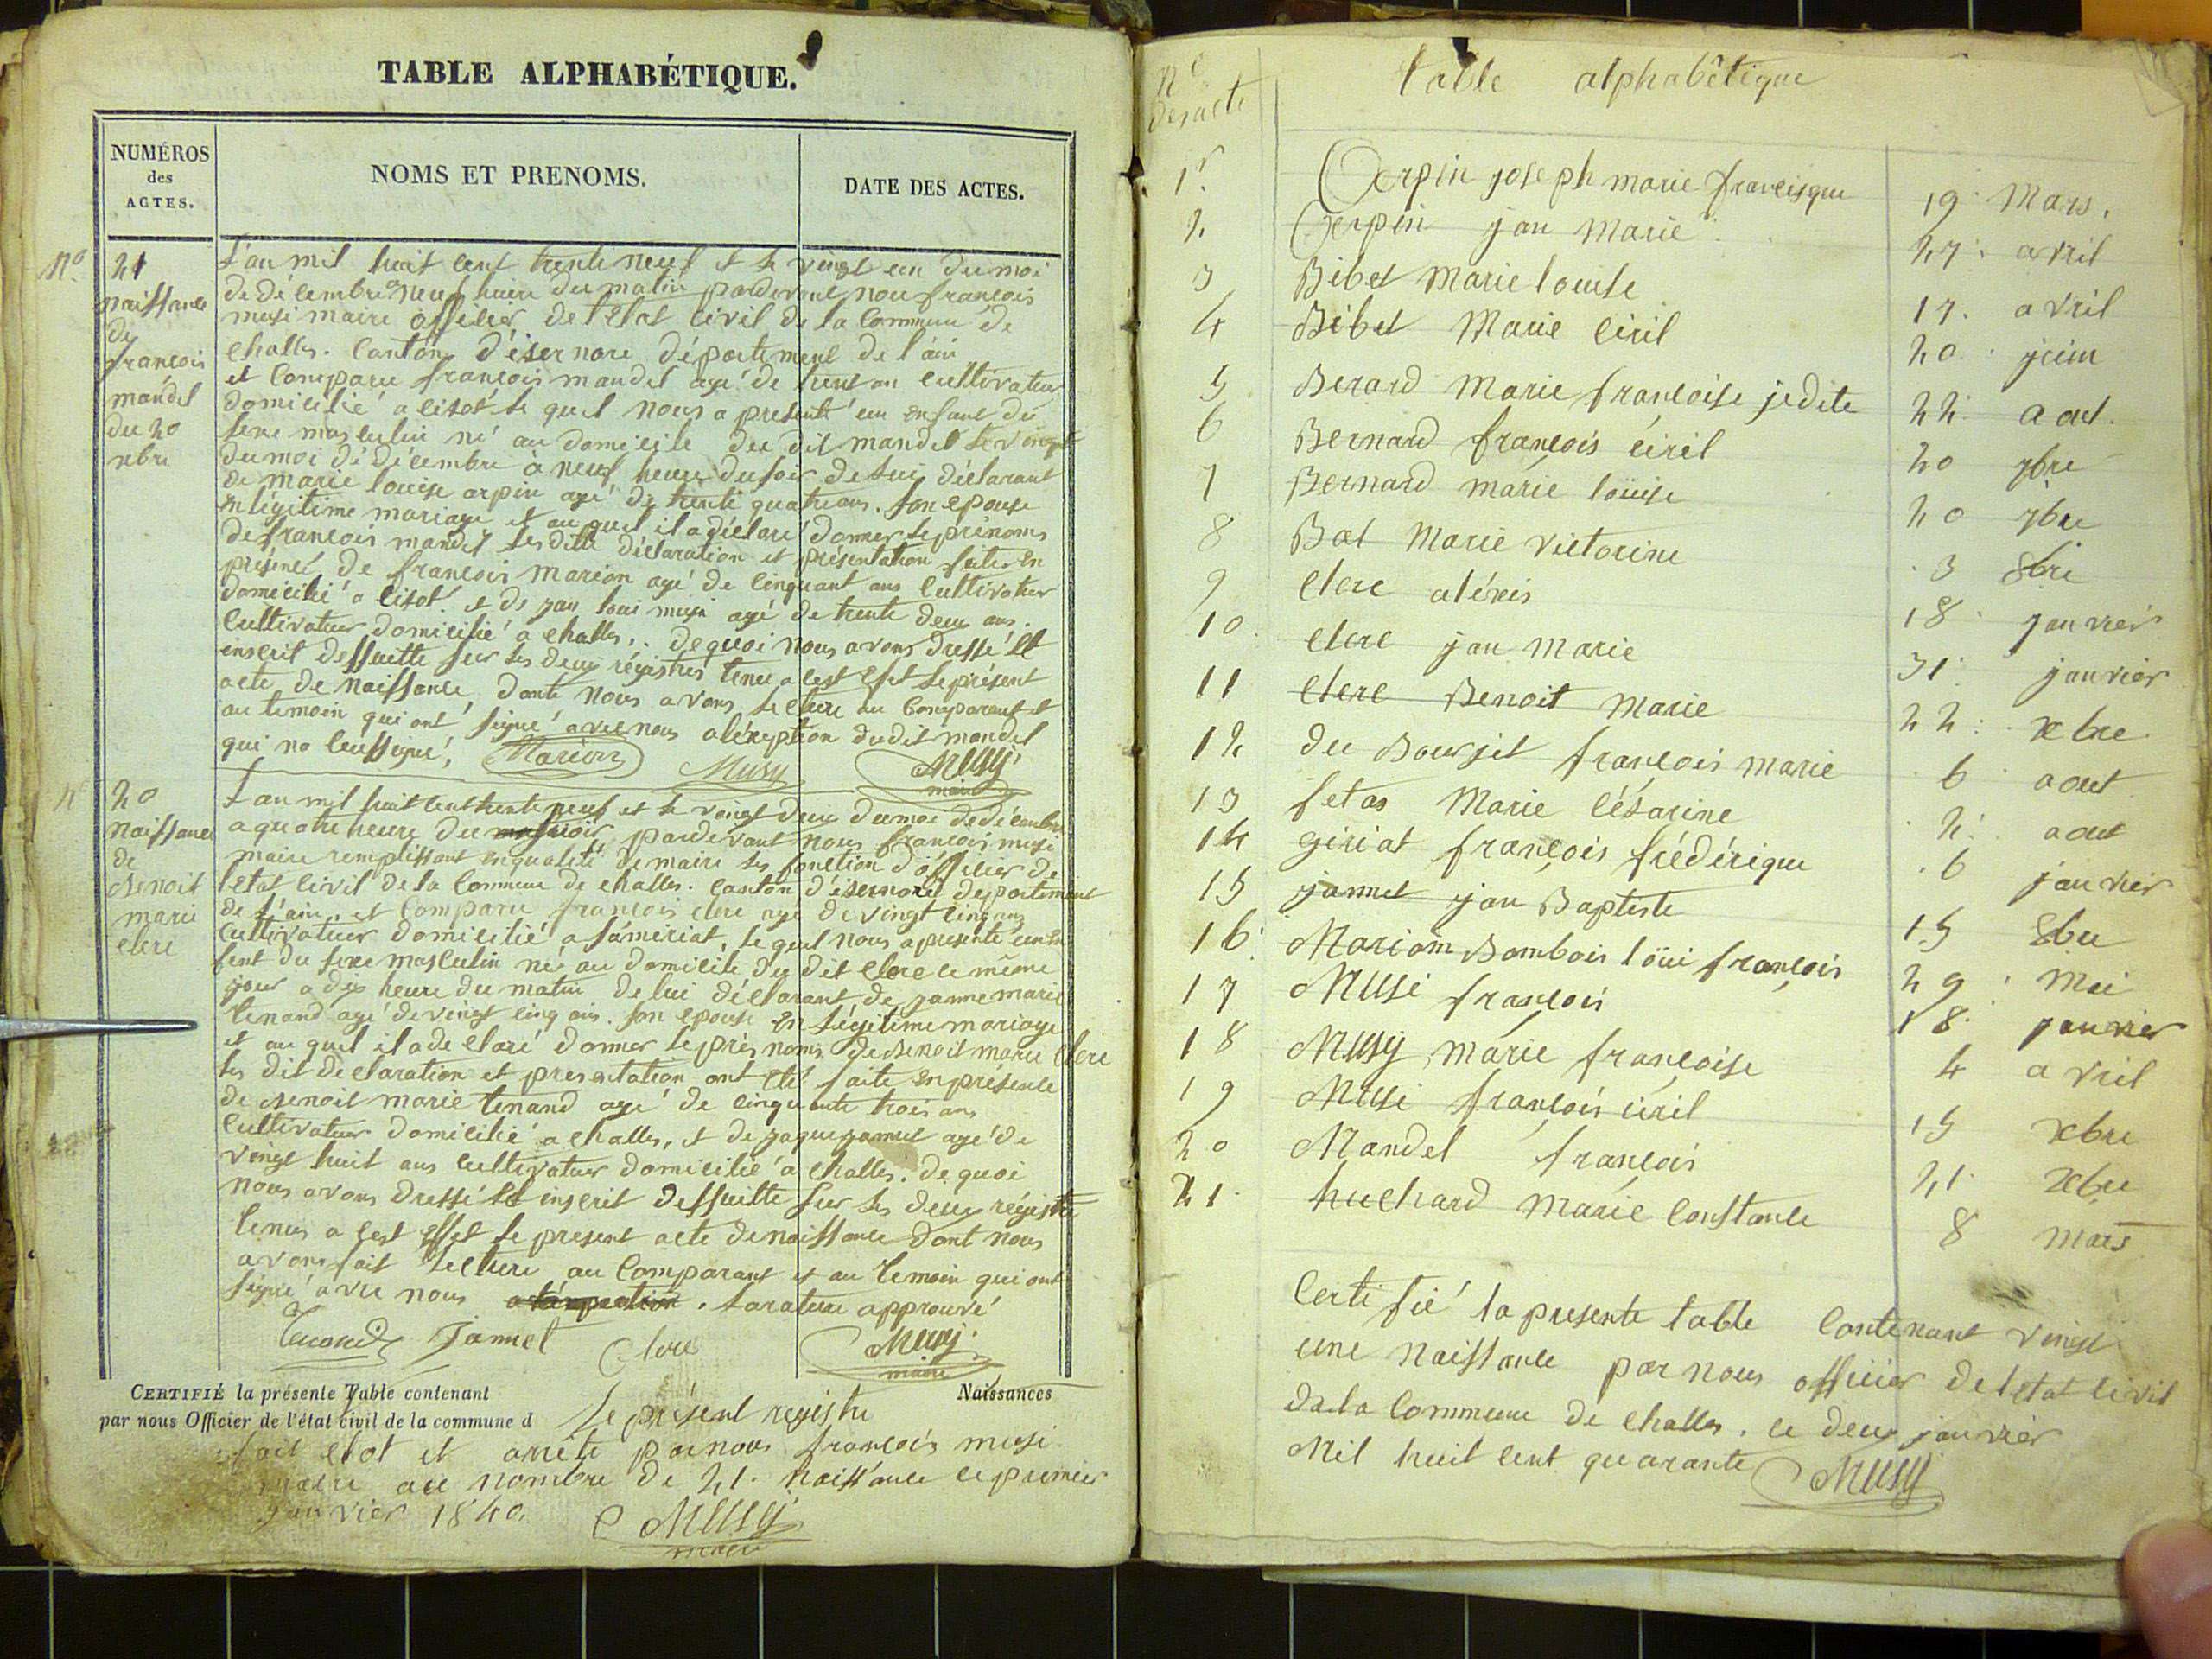 TABLE ALPHABÉTIQUE.
NUMÉROS
des
ACTES.
NOMS ET PRENOMS.
DATE DES ACTES.
No 21
naissance
de
francois
mandel
du 20
xbre
L'an mil huit cent trente neuf et le vingt un du moi
de décembre a neuf heure du matin pardevant nou francois
musi maire officier de l'etat civil de la commune de
challes. canton d'isernore département de l'ain
et comparu francois mandel agé de trent an cultivateur
domicilié a lizot le quel nous a presenté un enfant du
sexe masculin né au domicile du dit mandel le vingt
du moi de décembre à neuf heure du soir de lui déclarant
de marie louise arpin agé de trente quatre ans. son epouse
en légitime mariage et au quel il a déclaré donner le prénoms
de francois mandel les ditte déclaration et présentation faite en
présence de francois marion agé de cinquant ans cultivateur
domicilié a lizot. et de jan loui musi agé de trente deux ans.
cultivateur domicilié a challes. de quoi nous avons dressé et
inscrit dessuitte sur les deux régistres tenu a cest efet le présent
acte de naissance, dont nous avons lecture au comparant et
au temoin qui ont signé avec nous a léxeption dudit mandel
qui na seu signé,
Marion
Musy
Musy
maire
No 20
naissance
de
Benoit
marie
clere
L'an mil huit cent trente neuf et le vingt deux du moi de décembre
a quatre heure du soir pardevant nous francois musi
maire remplissant en qualité de maire les fonction d'officier de
l'etat civil de la commune de challes. canton d'isernore département
de l'ain, et comparu francois clere agé de vingt cinq ans
cultivateur domicilié a samériat, le quel nous a presenté un en
fent du sexe masculin né au domicile du dit clere le même
jour a dix heure du matin de lui déclarant, de janne marie
tenand agé de vingt cinq ans. son epouse en légitime mariage
et au quel il a déclaré donner le pré noms de Benoit marie clere
les dit déclaration et presentation ont été faite en présence
de Benoit marie tenand agé de cinquante trois ans
cultivateur domicilié a challes, et de jaque jannet agé de
vingt huit ans cultivateur domicilié a challes. de quoi
nous avons dressé et inscrit dessuitte sur les deux régistre
tenus a cest effet le present acte de naissance dont nous
avons fait lecture au comparant et au temoin qui ont
signé avec nous a léxpection. la rature approuvé
Tenand Jannet
Clere
Musy
maire
CERTIFIÉ la présente Table contenant
Naissances
par nous Officier de l'état civil de la commune d
Le présent registre
fait clot et arrêté par nous francois musi
maire au nombre de 21. naissance le premier
janvier 1840.
Musy
maire
No
des acte
table alphabêtique
1r. Cerpin joseph marie francisque 19 Mars.
2 Cerpin jan marie 27. avril
3 Bibet Marie louise 17. avril
4 Bibet Marie ciril 20. juin
5 Berard Marie françoise jedite 22. aout.
6 Bernard françois ciril 20 7bre
7 Bernard marie loüise 20 7bre
8 Bat Marie victorine 3 8bre
9 clere aléxis 18 janvier
10. clere jan Marie 31. janvier
11 clere Benoit Marie 22. xbre
12 du Bourjet françois marie 6 aout
13 fetas Marie césarine 2. aout
14 giriat françois frédérique 6 janvier
15 jannet jan Baptiste 15 8bre
16. Mariom Bombois loüi françois 29. Mai
17 Musi françois 18. janvier
18 Musy marie françoise 4 avril
19 Musi françois ciril 15 xbre
20 Mandel francois 21. xbre
21. huchard marie constance 8 mars
Certifié la presente table contenant vingt
une naissance par nous officier de l'etat civil
de la commune de challes, le deux janvier
Mil huit cent quarante Musy